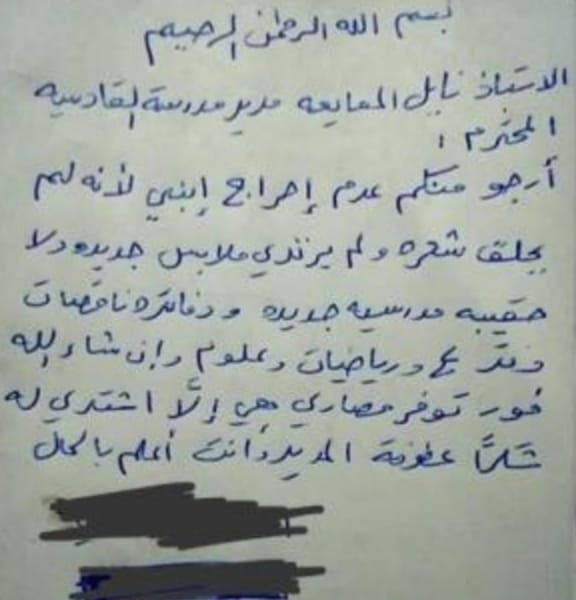 بسم الله الرحمن الرحيم
الاستاذ نايل المعايعه مدير مدرسة القادسيه
المحترم :
أرجو منكم عدم إحراج إبني لأنه لم
يحلق شعره ولم يرتدي ملابس جديده ولا
حقيبه مدرسيه جديده ودفاتره ناقصات
دفتر ع ورياضيات وعلوم وإن شاء الله
فور توفر مصاري هي إلّا اشتري له
شكراً عطوفة المدير وأنت أعلم بالحال